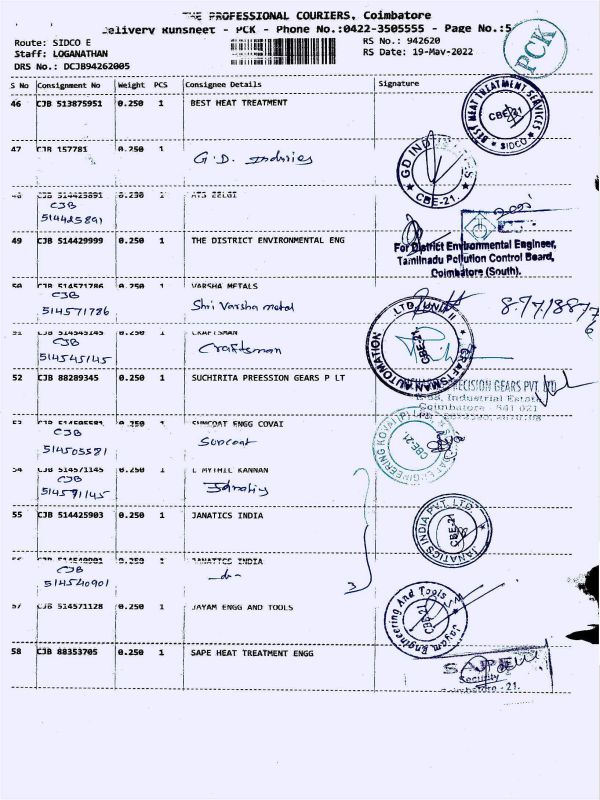 THE PROFESSIONAL COURIERS, Coimbatore
Delivery Runsheet - PCK - Phone No.:0422-3505555 - Page No.:5
Route: SIDCO E
RS No.: 942620
Staff: LOGANATHAN
RS Date: 19-May-2022
DRS No.: DCJB94262005
PCK
S No Consignment No Weight PCS Consignee Details Signature
46 CJB 513875951 0.250 1 BEST HEAT TREATMENT
BEST HEAT TREATMENT SERVICES
CBE-21
* SIDCO *
47 CJB 157781 0.250 1
G.D. Indusries
GD INDUSTRIES
CBE-21.
48 CJB 514425891 0.250 1
CJB
514425891
49 CJB 514429999 0.250 1 THE DISTRICT ENVIRONMENTAL ENG
For District Environmental Engineer,
Tamilnadu Pollution Control Board,
Coimbatore (South).
50 CJB 514571786 0.250 1 VARSHA METALS
CJB
514571786
Shri Varsha metal
51 CJB 514545145 0.250 1 CRAFTSMAN
CJB
514545145
Craftsman
CRAFTSMAN AUTOMATION LTD. UNIT II
CBE-21.
52 CJB 88289345 0.250 1 SUCHIRITA PREESSION GEARS P LT
PRECISION GEARS PVT. LTD
Industrial Estate
Coimbatore - 641 021
53 CJB 514505581 0.250 1 SUNCOAT ENGG COVAI
CJB
514505581
Suncoat
CBE-21.
54 CJB 514571145 0.250 1 L MYTHIL KANNAN
CJB
514571145
55 CJB 514425903 0.250 1 JANATICS INDIA
JANATICS INDIA PVT. LTD.
CBE-21
56 CJB 514540901 0.250 1 JANATICS INDIA
CJB
514540901
-do-
3
57 CJB 514571128 0.250 1 JAYAM ENGG AND TOOLS
Jayam Engineering And Tools
CBE-21
58 CJB 88353705 0.250 1 SAPE HEAT TREATMENT ENGG
SAPE
Security
Coimbatore - 21.